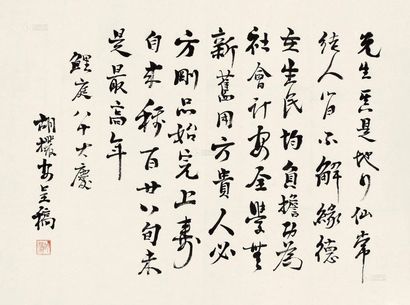 先生真是地行仙常
使人皆不解緣德
在生民均負擔功為
社會計安全學無
新舊用方貴人必
方剛品始完上壽
自來稱百廿八旬未
是最高年
鯉庭八十大慶
胡樸安呈稿